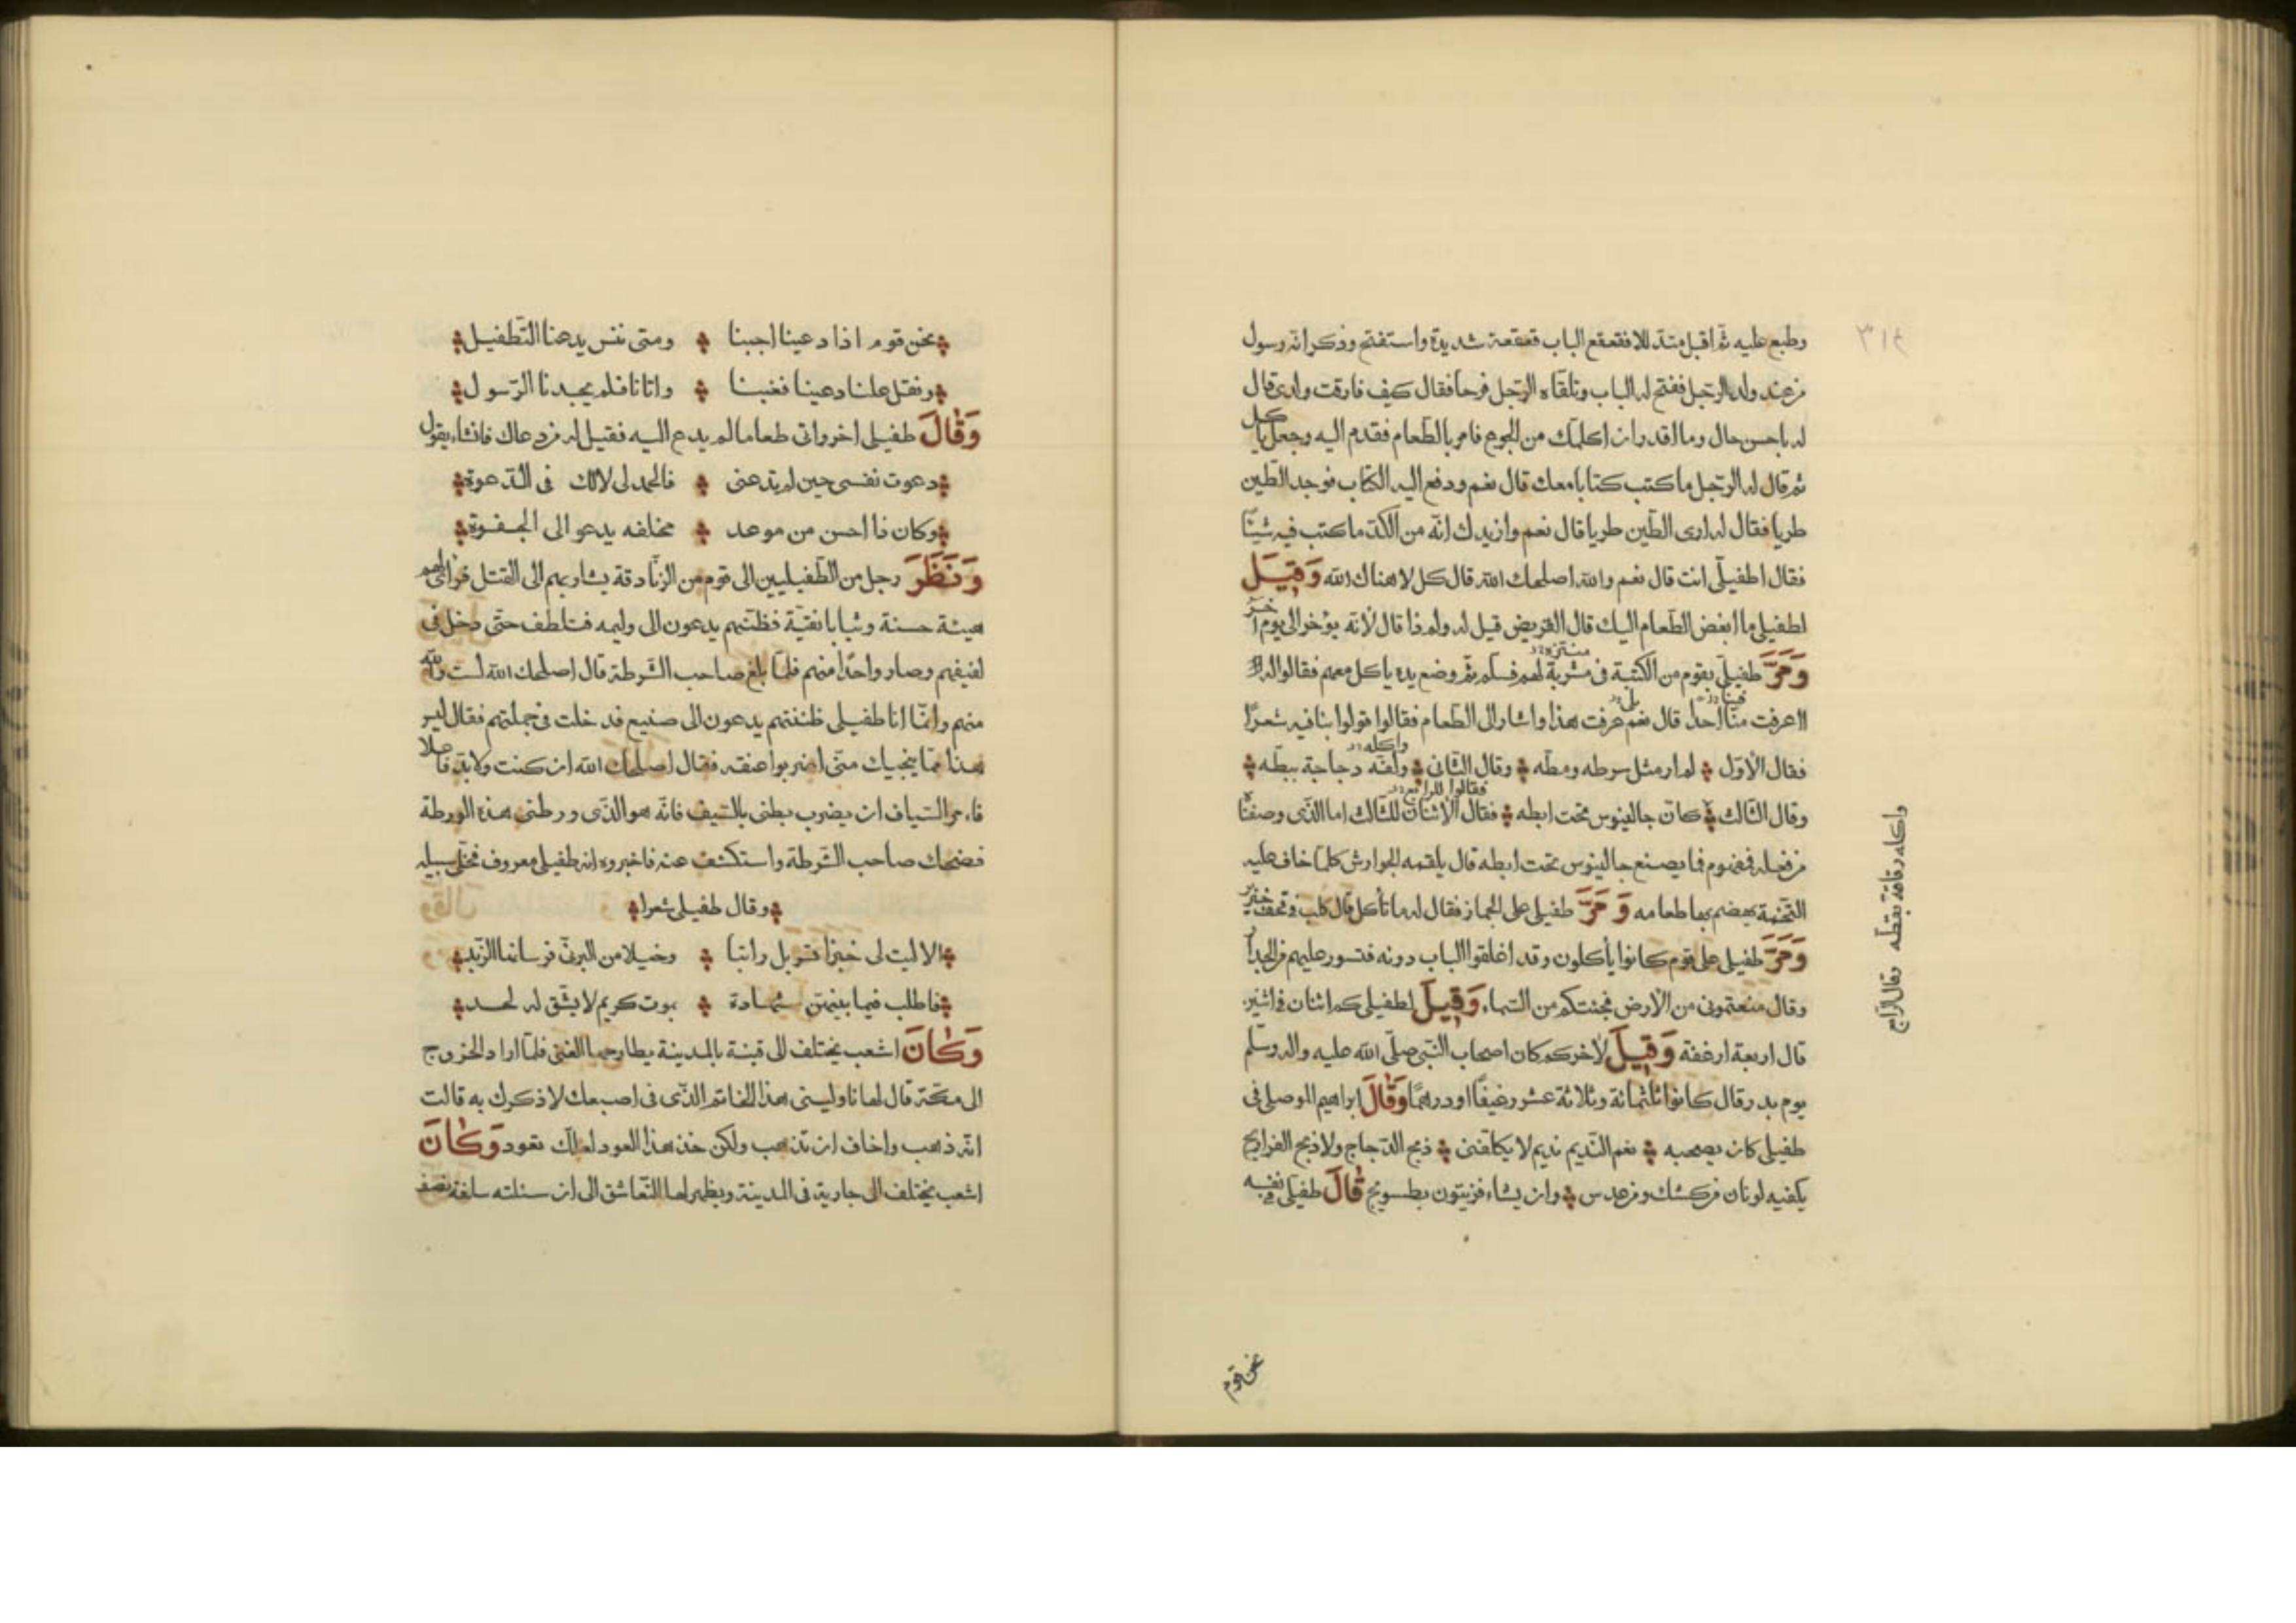 ٣١٤
وطبع عليه ثم اقبل متدللا فقعقع الباب قعقعة شديدة واستفتح وذكر انه رسول
من عند ولد الرجل ففتح له الباب وتلقاه الرجل فرحا فقال كيف فارقت ولدى قال
له باحسن حال وما اقدر ان اكلمك من الجوع فامر بالطعام فقدم اليه وجعل ياكل
ثم قال له الرجل ما كتب كتابا معك قال نعم ودفع اليه الكتاب فوجد الطين
طريا فقال له ارى الطين طريا قال نعم وازيدك انه من الكد ما كتب فيه شيئا
فقال اطفيلى انت قال نعم والله اصلحك الله قال كل لا هناك الله وَقِيلَ
لطفيلى ما ابغض الطعام اليك قال القريض قيل له ولم ذا قال لانه يؤخر الى يوم اخر
وَمَرَّ طفيلى بقوم من الكتبة فى مشربة لهم فسلم ثم وضع يده ياكل معهم فقالوا له
اعرفت منا احدا قال نعم عرفت هذا واشار الى الطعام فقالوا قولوا بنا فيه شعرا
فقال الاول لم ار مثل سرطه ومطه وقال الثانى ولفه دجاجة ببطه
وقال الثالث كان جالينوس تحت ابطه فقال الاثنان للثالث اما الذى وصفناه
من فعله فمفهوم فما يصنع جالينوس تحت ابطه قال يلقمه الجوارش كلما خاف عليه
التخمة يهضم بها طعامه وَمَرَّ طفيلى على الجماز فقال له ما تأكل قال كلب فى قحف خنزير
وَمَرَّ طفيلى على قوم كانوا يأكلون وقد اغلقوا الباب دونه فتسور عليهم من الجدار
وقال منعتمونى من الارض فجئتكم من السماء وَقِيلَ لطفيلى كم اثنان فى اثنين
قال اربعة ارغفة وَقِيلَ لاخر كم كان اصحاب النبى صلى الله عليه واله وسلم
يوم بدر قال كانوا ثلثمائة وثلاثة عشر رغيفا او درهما وَقَالَ ابراهيم الموصلى فى
طفيلى كان يصحبه نعم النديم نديم لا يكلفنى ذبح الدجاج ولا ذبح الفراريج
يكفيه لونان من كشك ومن عدس وان يشاء فزيتون بطسوج قَالَ طفيلى فى نفسه
واكله دقاقة بقطه وقال الرابع
نحن قوم
نحن قوم اذا دعينا اجبنا ومتى ننس يدعنا التطفيل
ونقل علنا دعينا فغبنا واتانا فلم يجدنا الرسول
وَقَالَ طفيلى اخر واتى طعاما لم يدع اليه فقيل له من دعاك فانشاء يقول
دعوت نفسى حين لم تدعنى فالحمد لى لا لك فى الدعوة
وكان ذا احسن من موعد مخلفه يدعو الى الجفوة
وَنَظَرَ رجل من الطفيليين الى قوم من الزنادقة يسار بهم الى القتل فراى لهم
هيئة حسنة وثيابا نقية فظنهم يدعون الى وليمه فتلطف حتى دخل فى
لفيفهم وصار واحدا منهم فلما بلغ صاحب الشرطة قال اصلحك الله لست والله
منهم وانما انا طفيلى ظننتهم يدعون الى صنيع فدخلت فى جملتهم فقال ليس
هذا مما ينجيك منى اضربوا عنقه فقال اصلحك الله ان كنت ولا بد فاعلا
فامر السياف ان يضرب بطنى بالسيف فانه هو الذى ورطنى هذه الورطة
فضحك صاحب الشرطة واستكشف عنه فاخبروه انه طفيلى معروف فخلى سبيله
وقال طفيلى شعرا
الا ليت لى خبزا تسربل رائبا وخيلا من البرنى فرسانها الزبد
فاطلب فيما بينهن شهادة بموت كريم لا يشق له لحد
وَكَانَ اشعب يختلف الى قينة بالمدينة يطارحها الغنى فلما اراد الخروج
الى مكة قال لها ناولينى هذا الخاتم الذى فى اصبعك لاذكرك به قالت
انه ذهب واخاف ان تذهب ولكن خذ هذا العود لعلك تعود وَكَانَ
اشعب يختلف الى جارية فى المدينة ويظهر لها التعاشق الى ان سئلته سلفة نصف